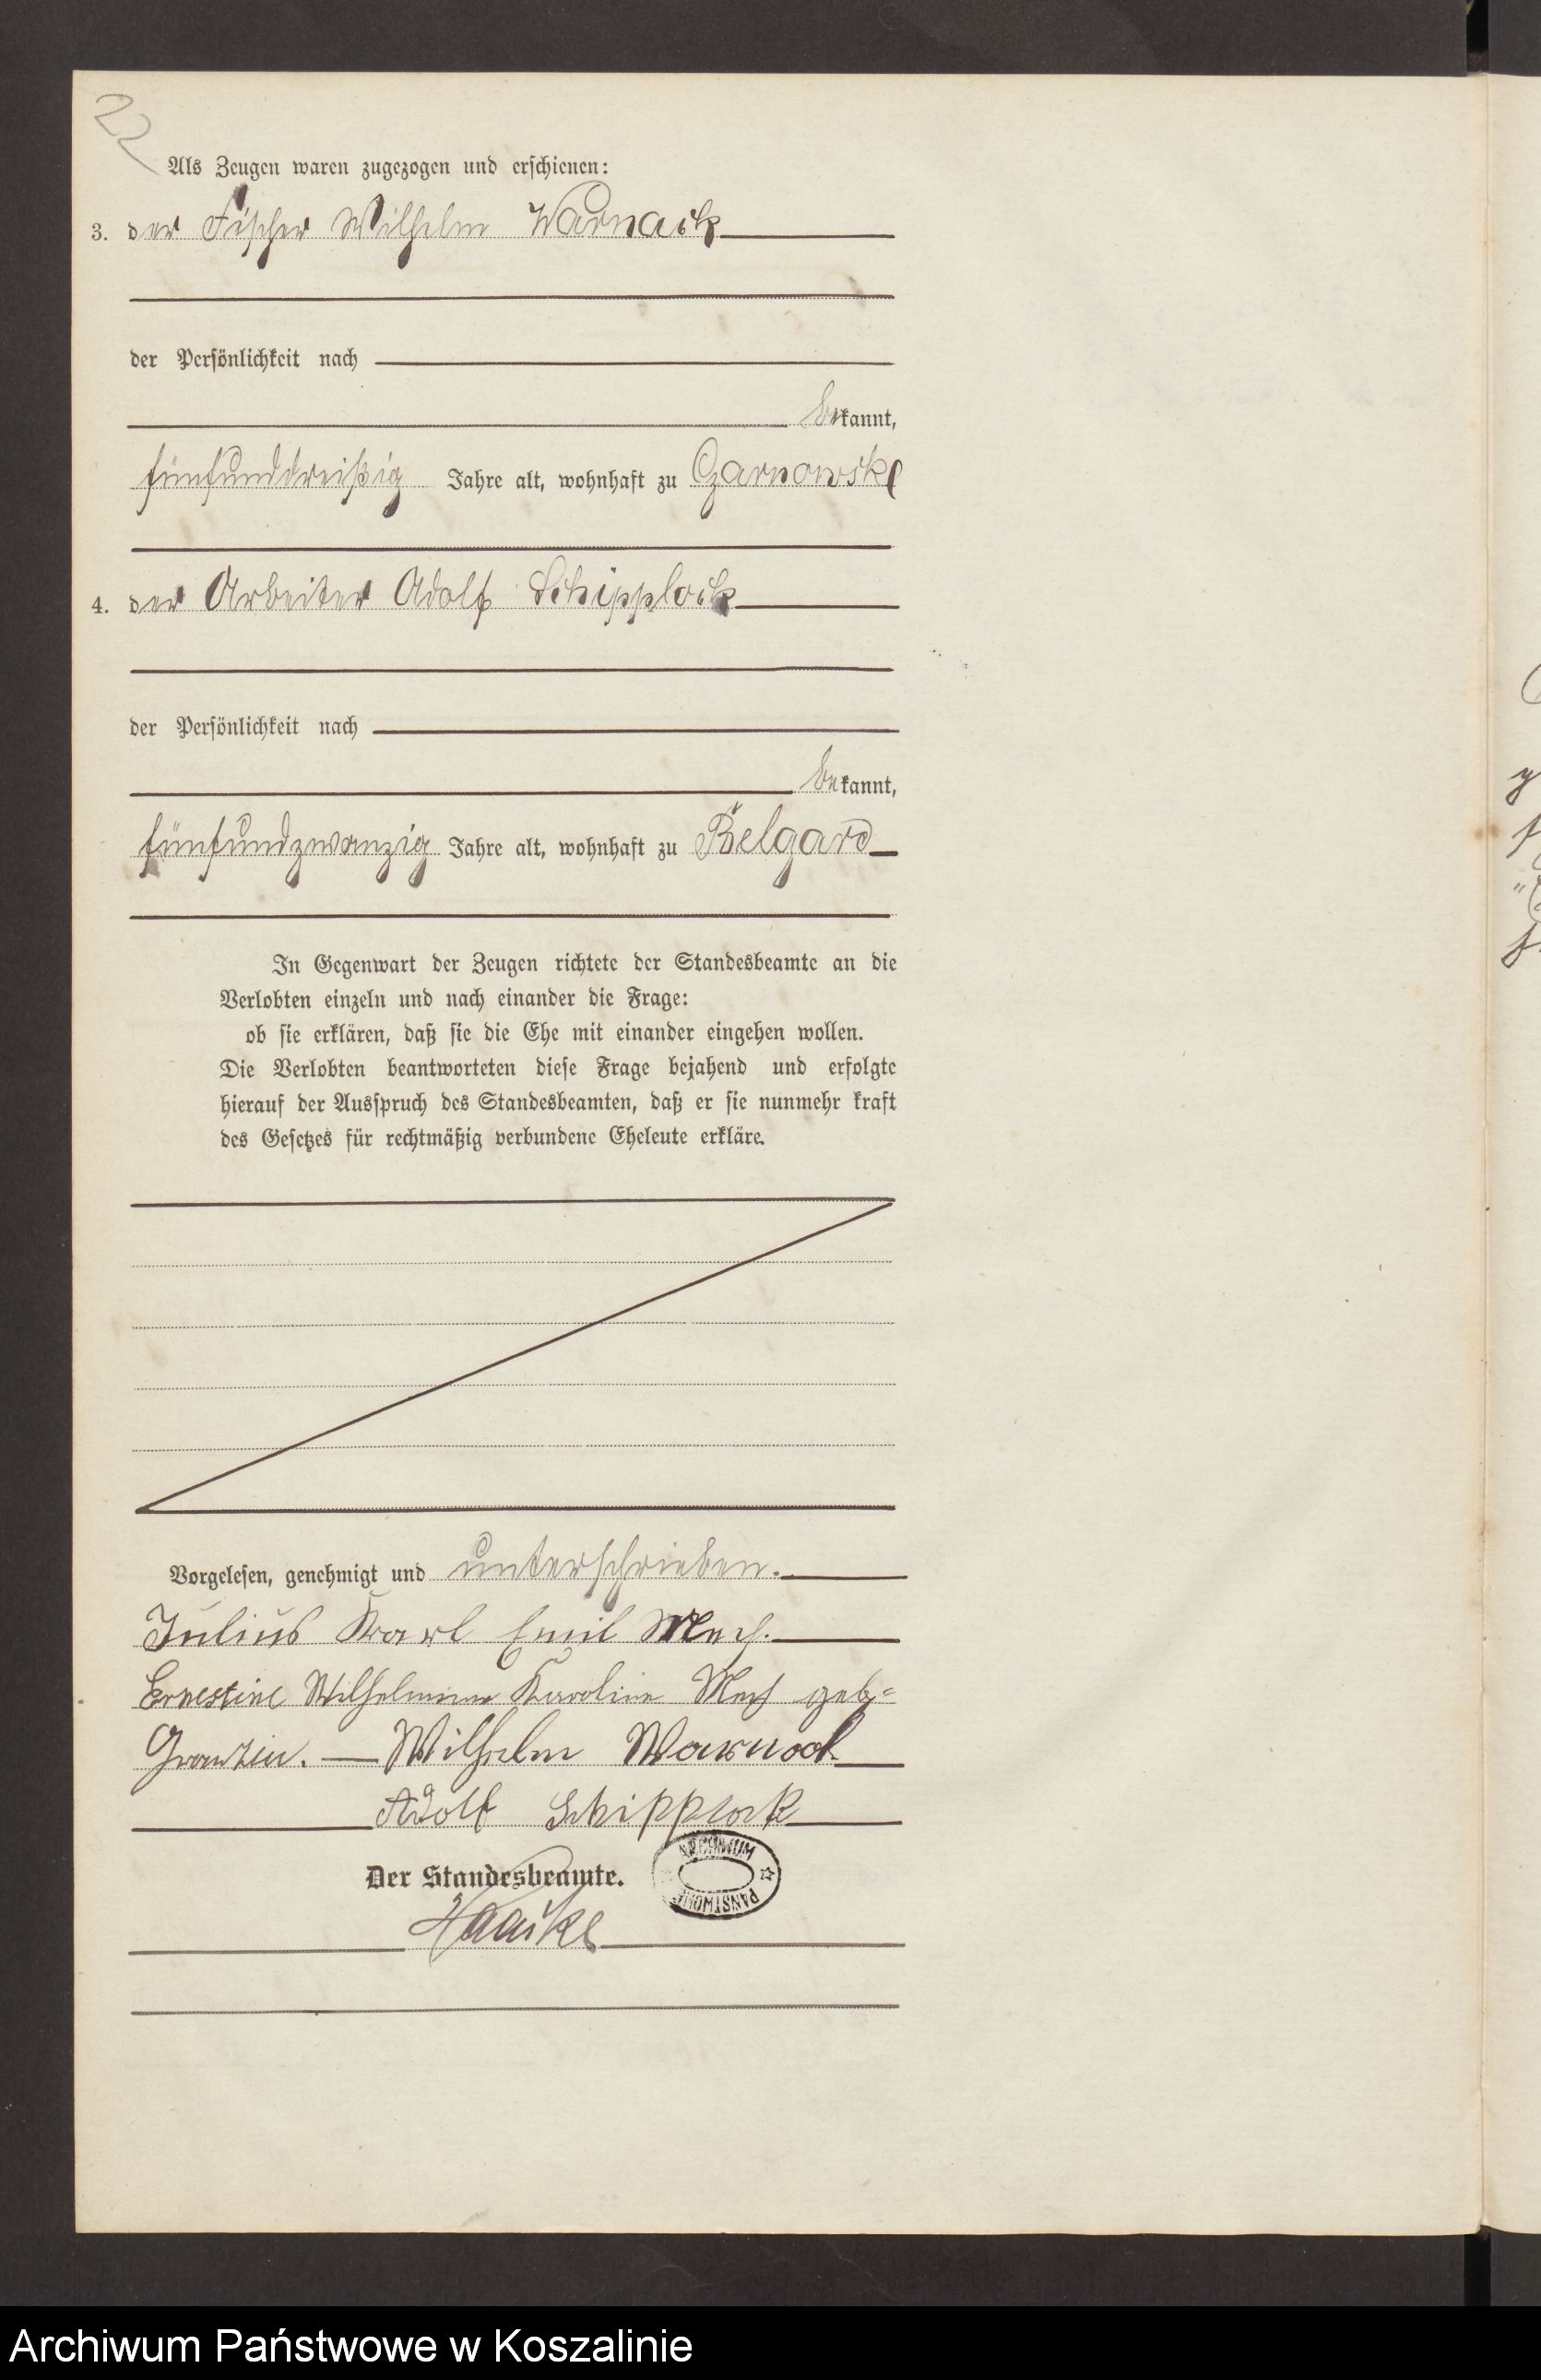 22
Als Zeugen waren zugezogen und erschienen:
3. der Fischer Wilhelm Warnack
der Persönlichkeit nach
bekannt,
fünfunddreißig Jahre alt, wohnhaft zu Czarnowske
4. der Arbeiter Adolf Schipplock
der Persönlichkeit nach
bekannt,
fünfundzwanzig Jahre alt, wohnhaft zu Belgard
In Gegenwart der Zeugen richtete der Standesbeamte an die
Verlobten einzeln und nach einander die Frage:
ob sie erklären, daß sie die Ehe mit einander eingehen wollen.
Die Verlobten beantworteten diese Frage bejahend und erfolgte
hierauf der Ausspruch des Standesbeamten, daß er sie nunmehr kraft
des Gesetzes für rechtmäßig verbundene Eheleute erkläre.
Vorgelesen, genehmigt und unterschrieben.
Julius Karl Emil Mech.
Ernestine Wilhelmine Karoline Mech geb.
Granzin. Wilhelm Warnack
Adolf Schipplock
Der Standesbeamte.
ARCHIWUM
PAŃSTWOWE
Archiwum Państwowe w Koszalinie